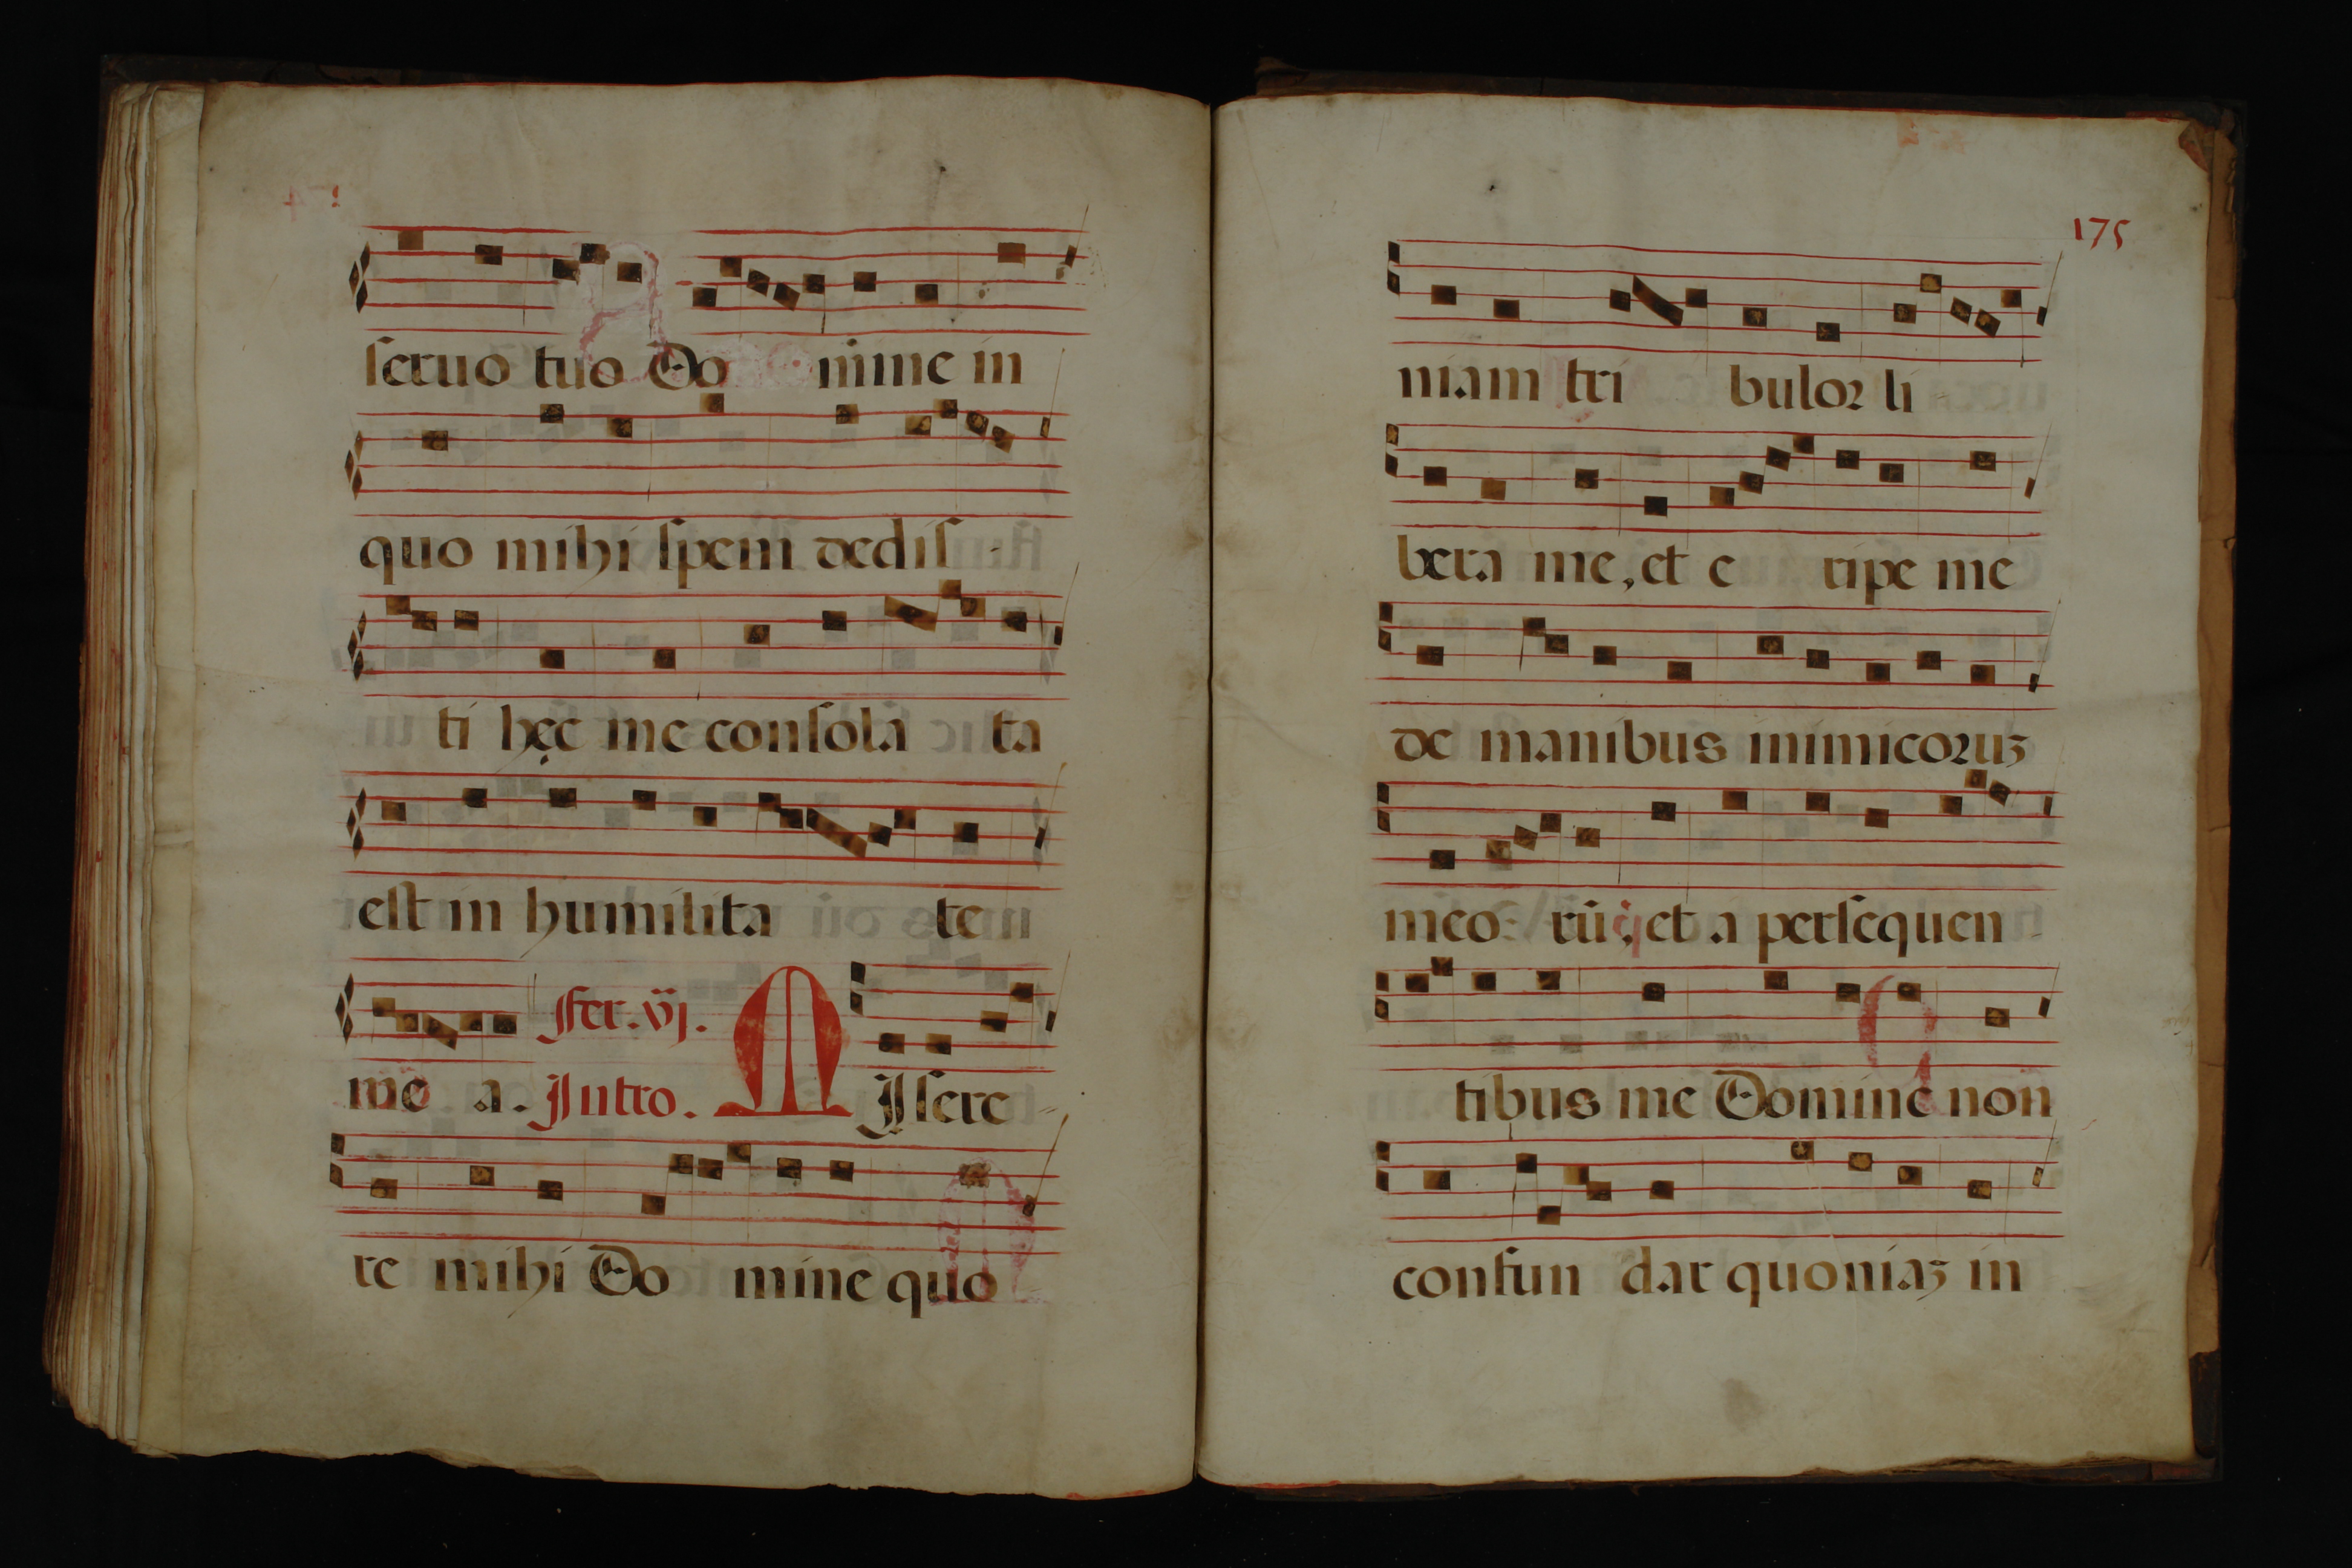 seruo tuo Do mine in
quo mihi spem dedis -
ti hęc me consola ta
est in humilita te
me a. fer. vj. Intro. MIsere -
re mihi Do mine quo
175
niam tri bulor li -
bera me, et e ripe me
de manibus inimicoruʒ
meo rũ, et a persequen -
tibus me Domine non
confun dar quoniaʒ in